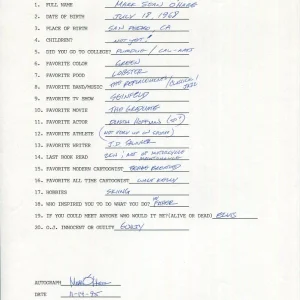 1. FULL NAME MARK SEAN O'HARE
2. DATE OF BIRTH JULY 18, 1968
3. PLACE OF BIRTH SAN PEDRO, CA
4. CHILDREN? NOT YET!
5. DID YOU GO TO COLLEGE? / CAL-ARTS
6. FAVORITE COLOR GREEN
7. FAVORITE FOOD LOBSTER
8. FAVORITE BAND/MUSIC THE REPLACEMENTS / CLASSICAL / JAZZ
9. FAVORITE TV SHOW SEINFELD
10. FAVORITE MOVIE THE GRADUATE
11. FAVORITE ACTOR DUSTIN HOFFMAN
12. FAVORITE ATHLETE (NOT
13. FAVORITE WRITER J.D. SALINGER
14. LAST BOOK READ ZEN & ART OF MOTORCYCLE MAINTENANCE
15. FAVORITE MODERN CARTOONIST
16. FAVORITE ALL TIME CARTOONIST WALT KELLY
17. HOBBIES SKIING
18. WHO INSPIRED YOU TO DO WHAT YOU DO?
19. IF YOU COULD MEET ANYONE WHO WOULD IT BE?(ALIVE OR DEAD) ELVIS
20. O.J. INNOCENT OR GUILTY GUILTY
AUTOGRAPH Mark O'Hare
DATE